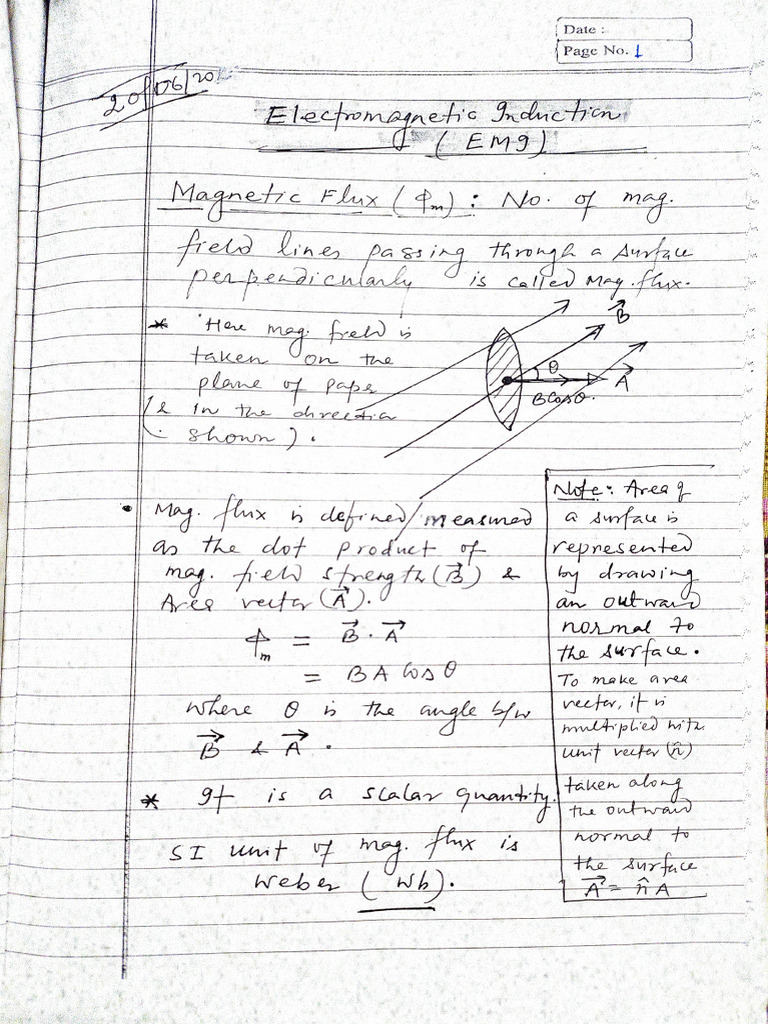 Date :
Page No. 1
20/06/20
Electromagnetic Induction
( EMI )
Magnetic Flux ( ϕm ) : No. of mag.
field lines passing through a surface
perpendicularly is called Mag. flux.
* Here mag. field is
taken on the
plane of pape
( & in the direction
shown ) .
B⃗
θ
A⃗
B cosθ.
• Mag. flux is defined/measured
as the dot product of
mag. field strength (B⃗) &
Area vector (A⃗).
ϕm = B⃗ . A⃗
= B A cos θ
where θ is the angle b/w
B⃗ & A⃗ .
* It is a scalar quantity.
SI unit of mag. flux is
Weber ( Wb ).
Note: Area of
a surface is
represented
by drawing
an outward
normal to
the surface.
To make area
vector, it is
multiplied with
unit vector (n̂)
taken along
the outward
normal to
the surface
A⃗ = n̂ A